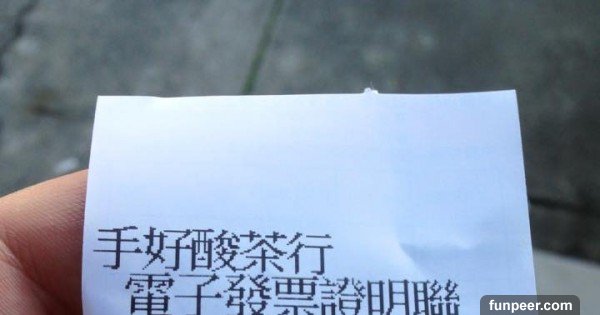 手好酸茶行
電子發票證明聯
funpeer.com